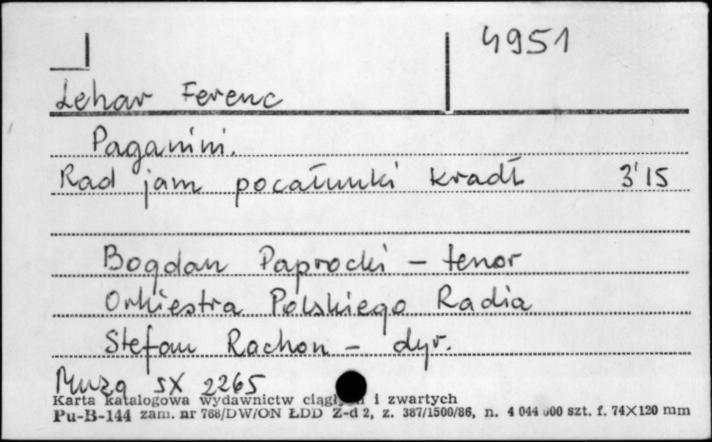 4951
Lehar Ferenc
Paganini.
Rad jam pocałunki kradł 3'15
Bogdan Paprocki – tenor
Orkiestra Polskiego Radia
Stefan Rachoń – dyr.
Muza SX 2265
Karta katalogowa wydawnictw ciągłych i zwartych
Pu-B-144 zam. nr 768/DW/ON ŁDD Z-d 2, z. 387/1500/86, n. 4 044 000 szt. f. 74×120 mm